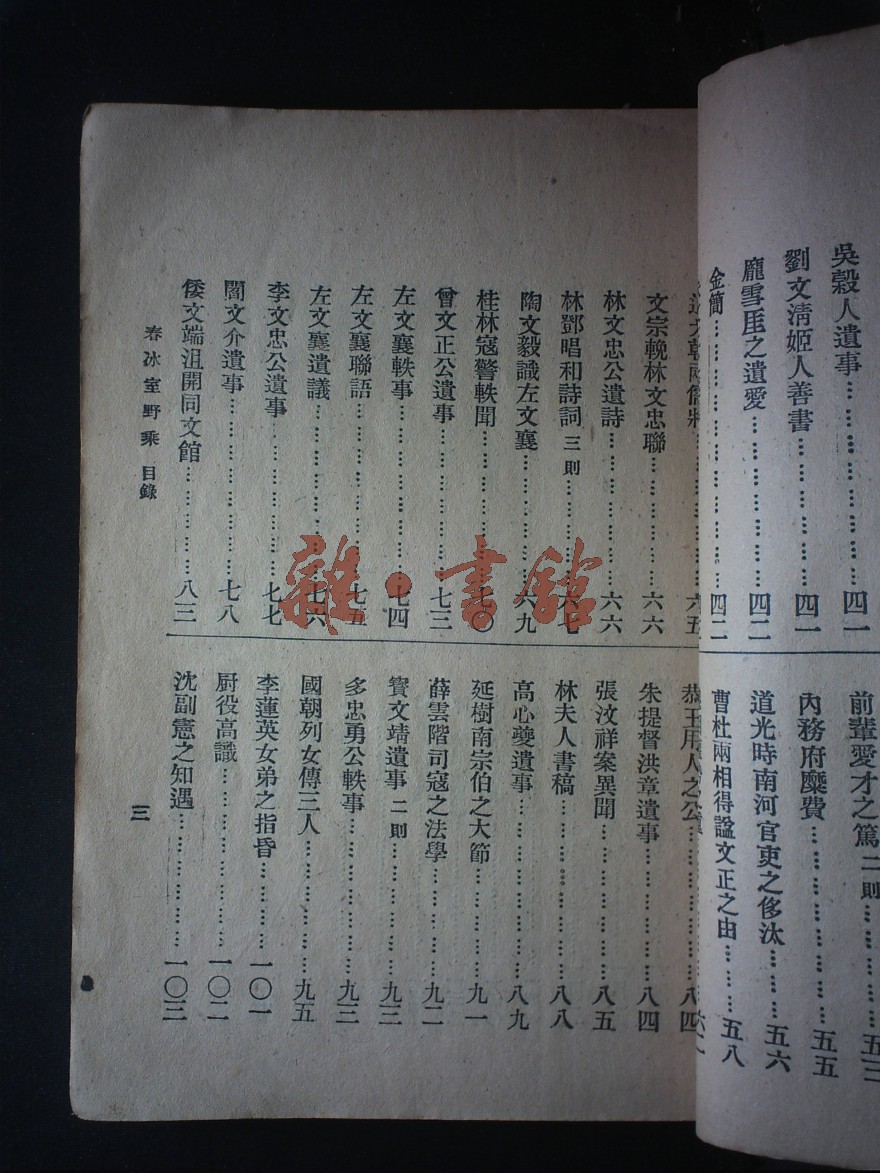 吳穀人遺事……………………四一
劉文清姬人善書………………四一
龐雪厓之遺愛…………………四二
金簡……………………………四二
前輩愛才之篤 二則……………五三
內務府糜費……………………五五
道光時南河官吏之侈汰………五六
曹杜兩相得諡文正之由………五八
文宗輓林文忠聯………………六六
林文忠公遺詩…………………六六
林鄧唱和詩詞 三則……………六七
陶文毅識左文襄………………六九
桂林寇警軼聞…………………七〇
曾文正公遺事…………………七三
左文襄軼事……………………七四
左文襄聯語……………………七五
左文襄遺議……………………七六
李文忠公遺事…………………七七
閻文介遺事……………………七八
倭文端沮開同文館……………八三
恭王用人之公…………………八四
朱提督洪章遺事………………八四
張汶祥案異聞…………………八五
林夫人書稿……………………八八
高心夔遺事……………………八九
延樹南宗伯之大節……………九一
薛雲階司寇之法學……………九二
寶文靖遺事 二則………………九三
多忠勇公軼事…………………九三
國朝列女傳三人………………九五
李蓮英女弟之指昏……………一〇一
厨役高識………………………一〇二
沈副憲之知遇…………………一〇三
春冰室野乘 目錄
三
雜·書館